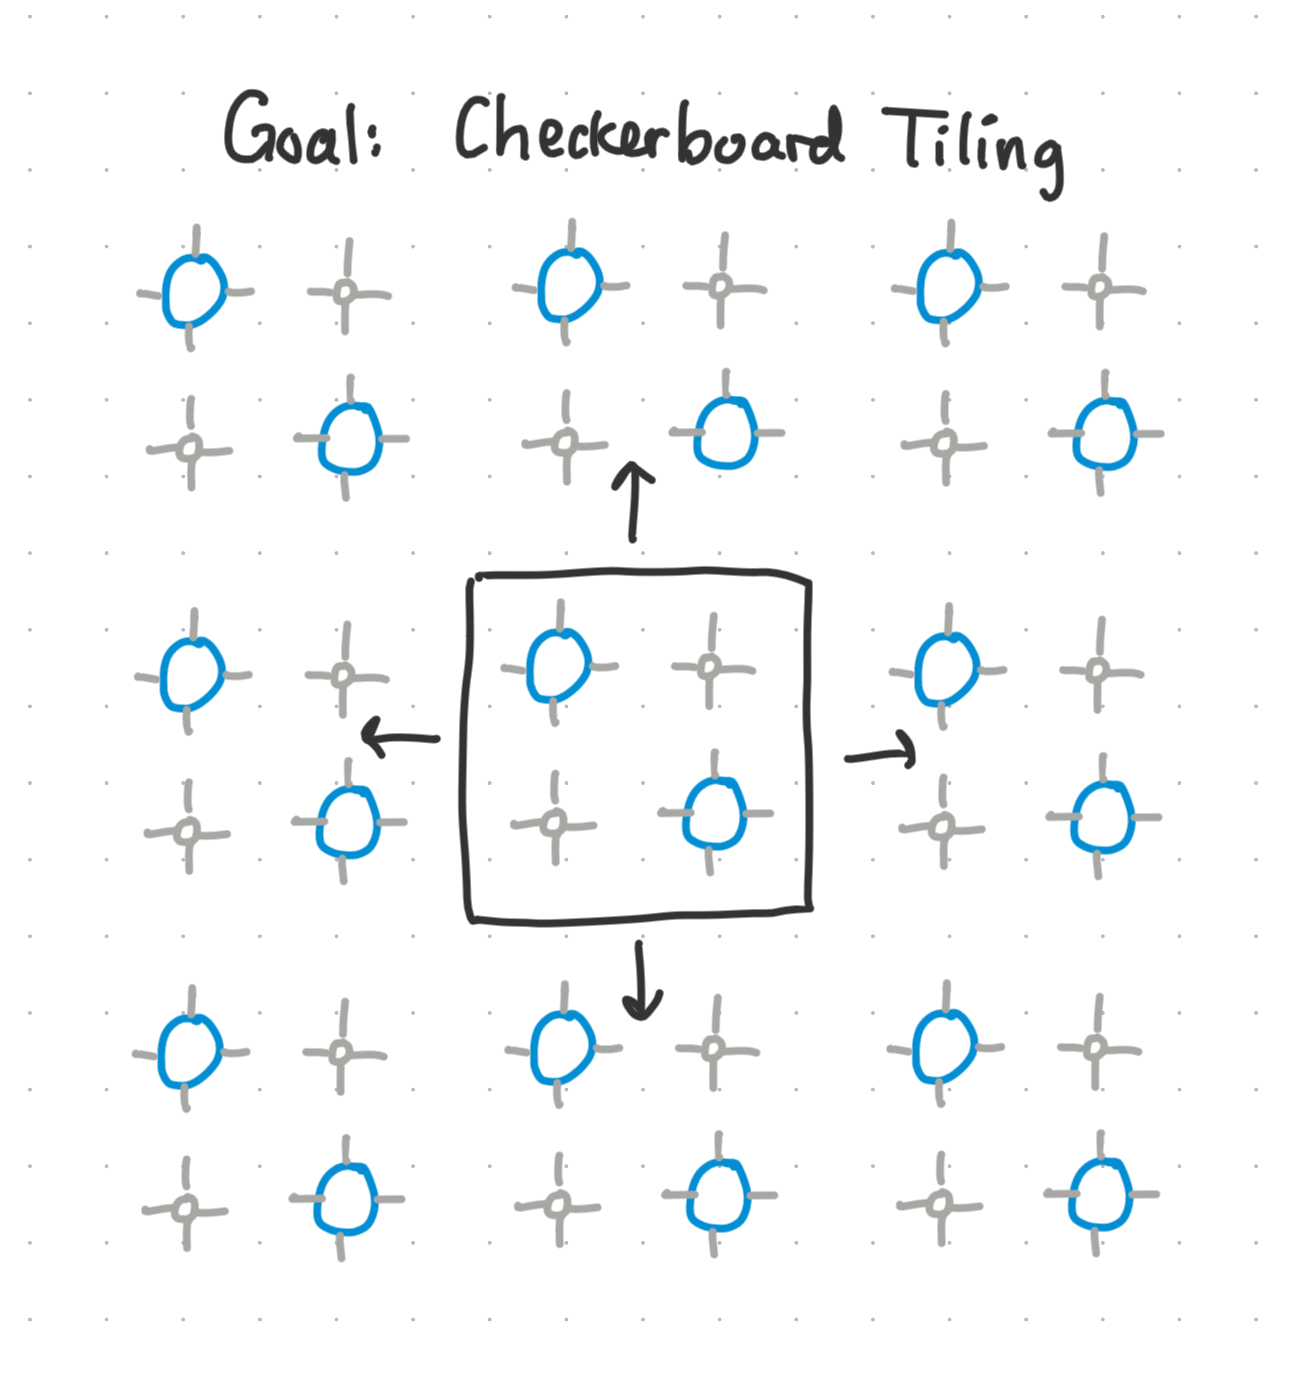 Goal: Checkerboard Tiling